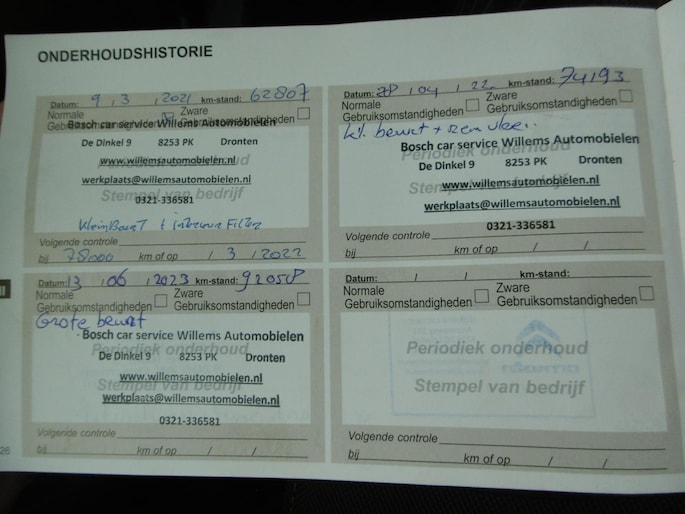 ONDERHOUDSHISTORIE
Datum: 9 / 3 / 2021 km-stand: 62807
Normale Zware
Gebruiksomstandigheden
Bosch car service Willems Automobielen
De Dinkel 9 8253 PK Dronten
Periodiek onderhoud
www.willemsautomobielen.nl
werkplaats@willemsautomobielen.nl
Stempel van bedrijf
0321-336581
+ interieur Filter
Volgende controle
bij 78000 km of op / 3 / 2022
Datum: 28 / 04 / 22 km-stand: 74193
Normale Zware
Gebruiksomstandigheden Gebruiksomstandigheden
kl. beurt +
Bosch car service Willems Automobielen
Periodiek onderhoud
De Dinkel 9 8253 PK Dronten
www.willemsautomobielen.nl
Stempel van bedrijf
werkplaats@willemsautomobielen.nl
0321-336581
Volgende controle
bij km of op / /
Datum: 13 / 06 / 2023 km-stand: 92058
Normale Zware
Gebruiksomstandigheden Gebruiksomstandigheden
Grote beurt
Bosch car service Willems Automobielen
Periodiek onderhoud
De Dinkel 9 8253 PK Dronten
www.willemsautomobielen.nl
Stempel van bedrijf
werkplaats@willemsautomobielen.nl
0321-336581
Volgende controle
bij km of op / /
Datum: / / km-stand:
Normale Zware
Gebruiksomstandigheden Gebruiksomstandigheden
Periodiek onderhoud
Stempel van bedrijf
Volgende controle
bij km of op / /
26